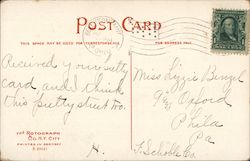 POST CARD
THIS SPACE MAY BE USED FOR CORRESPONDENCE
FOR ADDRESS ONLY
Received your pretty
card and I think
this pretty street too.
H.
Miss Lizzie
Oxford
Phila
Pa
THE ROTOGRAPH
CO., N.Y. CITY
PRINTED IN GERMANY